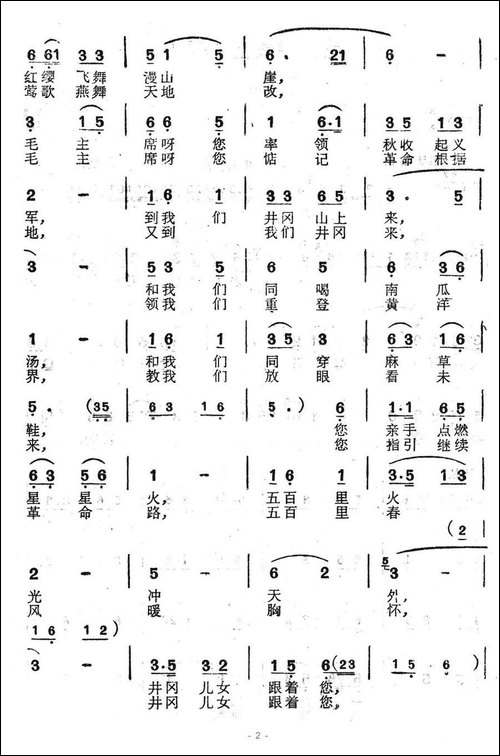 6 61 3 3 | 5 1 6 | 6. 21 | 6 -
红缨 飞舞 漫山 崖，
莺歌 燕舞 天地 改，
3 1 5 | 6 1 6 | 1 6·1 | 3 5 1 3
毛 主 席呀 您 率 领 秋收 起义
毛 主 席呀 您 惦 记 革命 根据
2 - | 1 6 1 | 3 3 5 5 | 3. 5
军， 到我 们 井冈 山上 来，
地， 又到 我们 井冈 来，
3 - | 5 3 5 | 6 5 | 6 3 6
和我 们 同 喝 南 瓜
领我 们 重 登 黄 洋
1 - | 1 6 1 | 3 5 3 | 6 3 1 6
汤， 和我 们 同 穿 麻 草
界， 教我 们 放 眼 看 未
5. (35 | 6 3 1 6 | 5.) 6 | 1·1 6 5
鞋， 您 亲手 点燃
来， 您 指引 继续
6 3 5 6 | 1 - | 1 6 1 | 3·5 1 3
星 星 火， 五百 里 火
革 命 路， 五百 里 春
(2
2 - | 5 - | 6 2 | 5 3 -
光 冲 天 外，
风 暖 胸 怀，
1 6 1 2)
3 - | 3·5 3 2 | 1 5 6 (23 | 1 5 6)
井冈 儿女 跟着 您，
井冈 儿女 跟着 您，
- 2 -